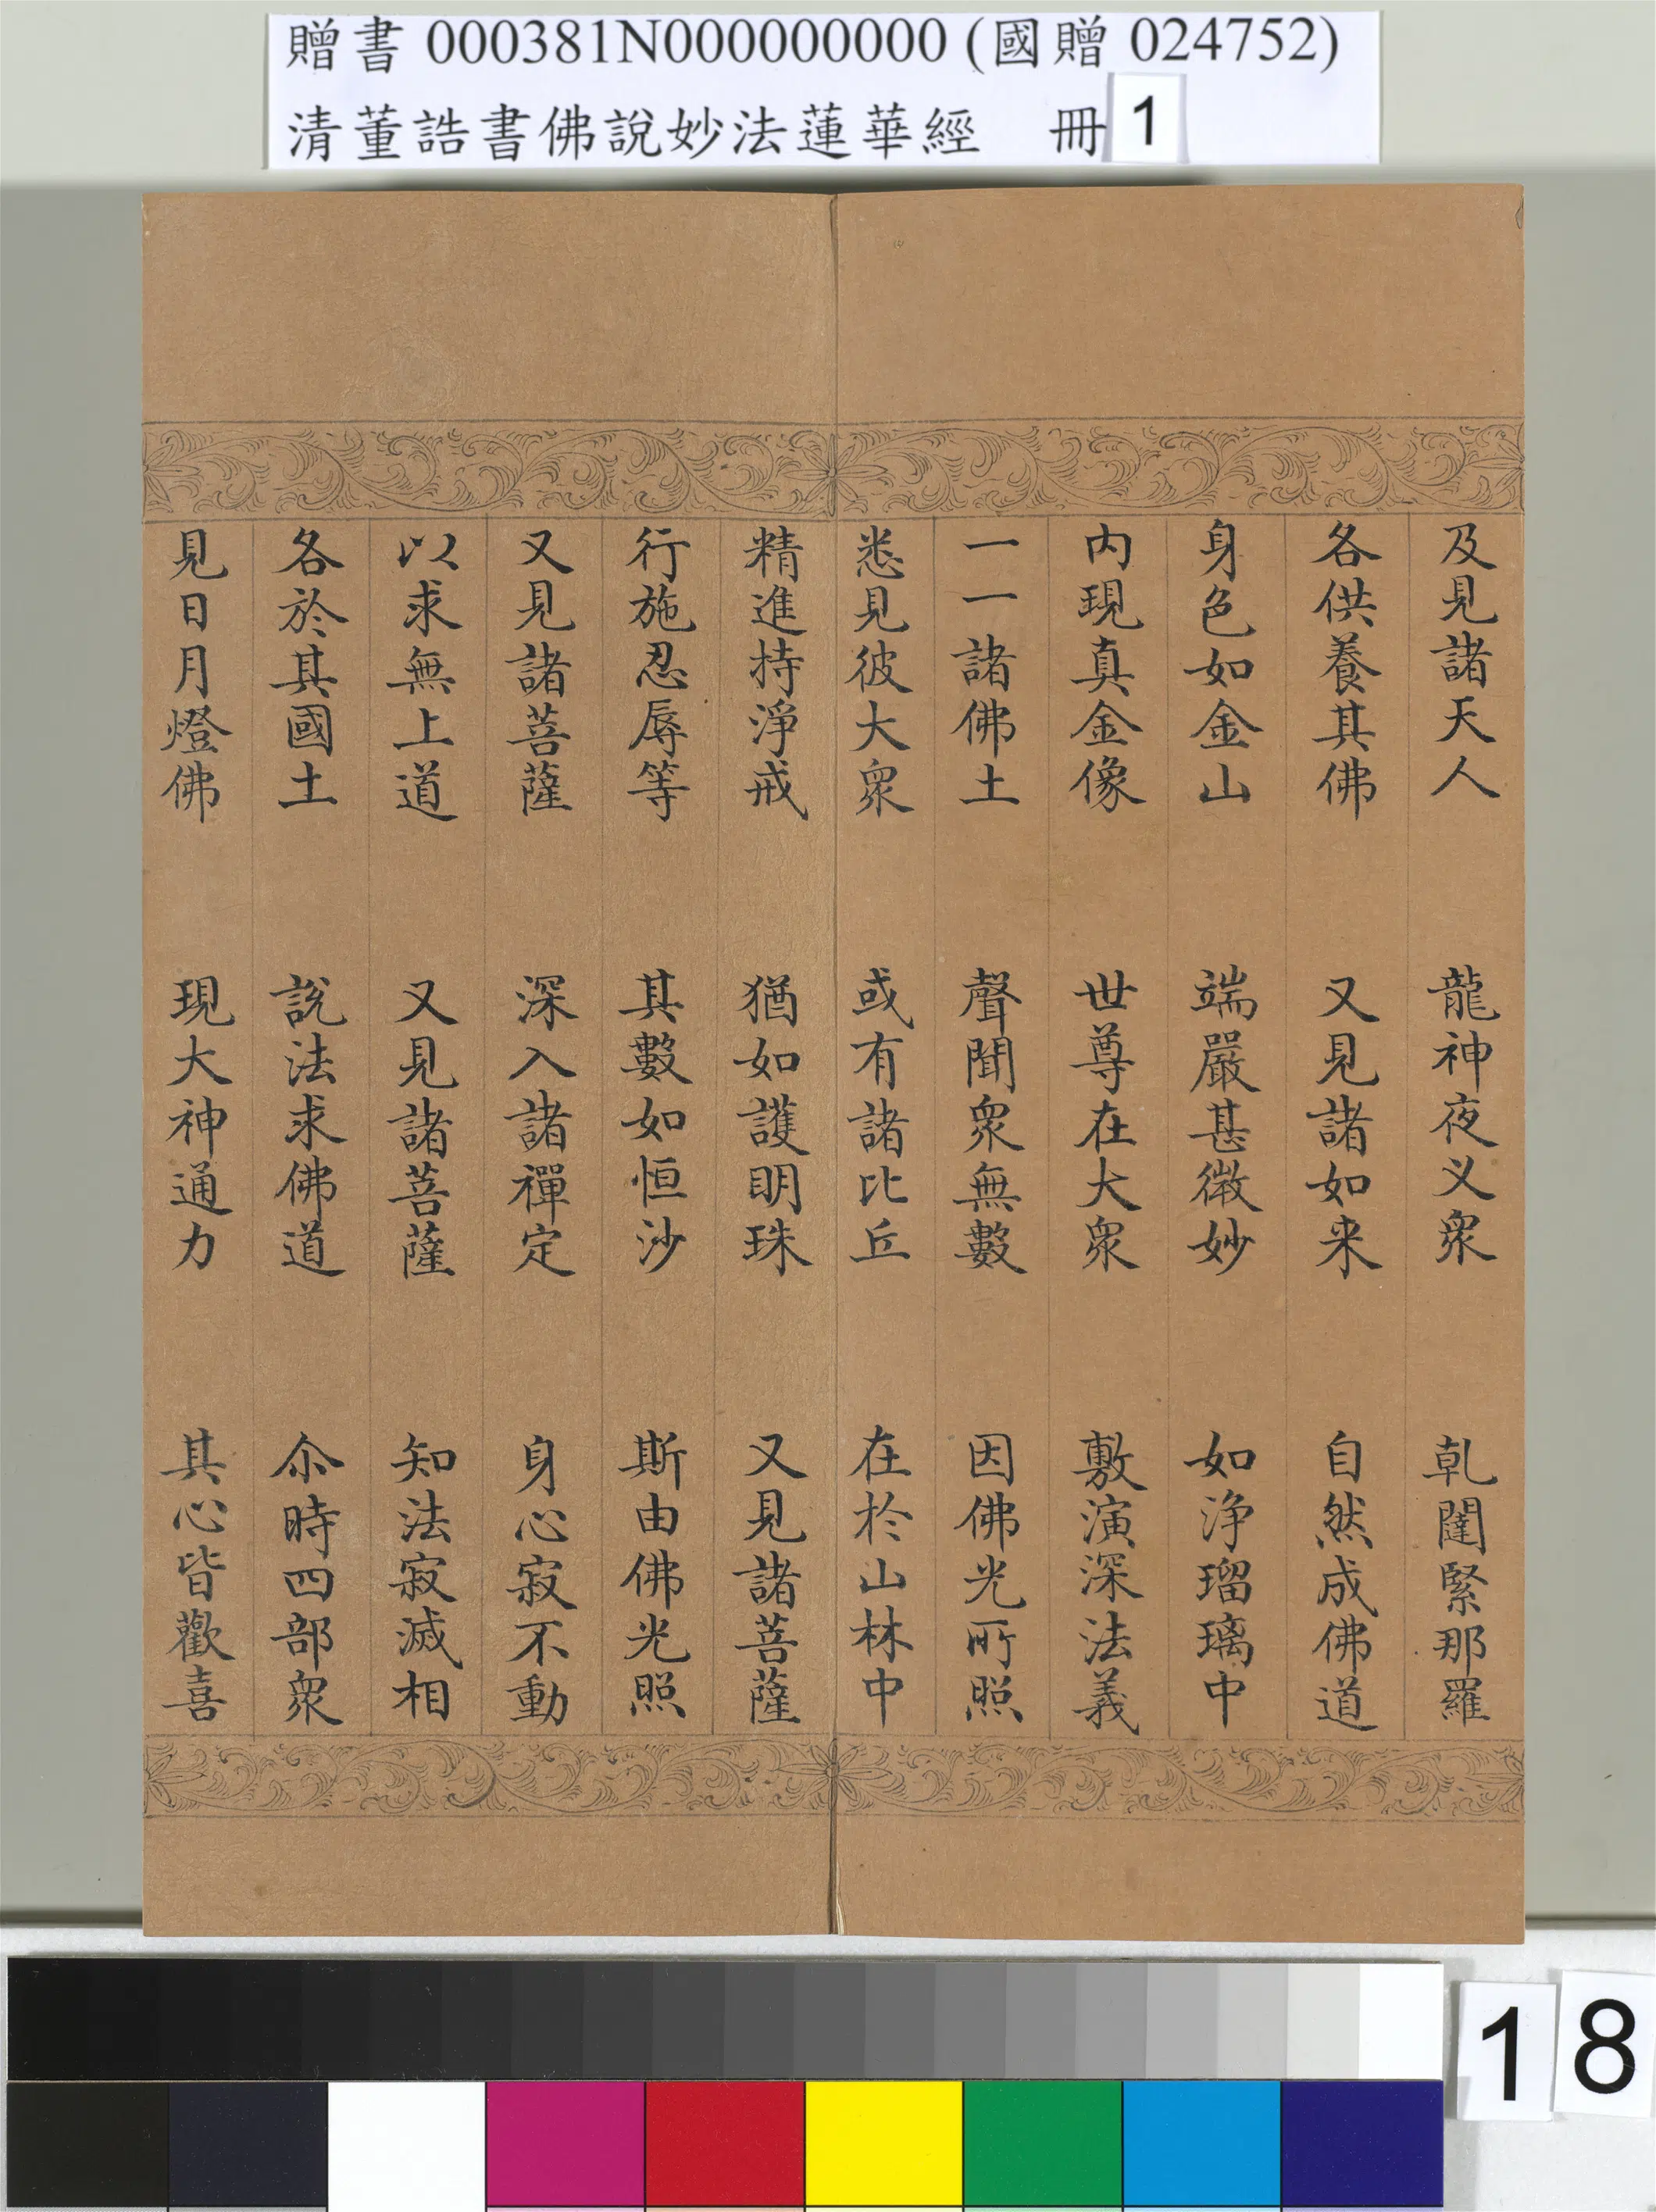 贈書 000381N000000000 (國贈 024752)
清董誥書佛說妙法蓮華經 冊 1
及見諸天人 龍神夜义衆 乹闥緊那羅
各供養其佛 又見諸如来 自然成佛道
身色如金山 端嚴甚微妙 如浄瑠璃中
内現真金像 世尊在大衆 敷演深法義
一一諸佛土 聲聞衆無數 因佛光所照
悉見彼大衆 或有諸比丘 在於山林中
精進持淨戒 猶如護明珠 又見諸菩薩
行施忍辱等 其數如恒沙 斯由佛光照
又見諸菩薩 深入諸禪定 身心寂不動
以求無上道 又見諸菩薩 知法寂滅相
各於其國土 說法求佛道 尒時四部衆
見日月燈佛 現大神通力 其心皆歡喜
18